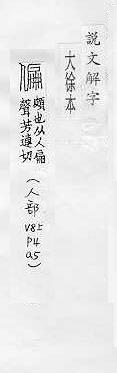 說文解字
大徐本
偏 頗也从人扁
聲芳連切
(人部
V8上
P4
a5)